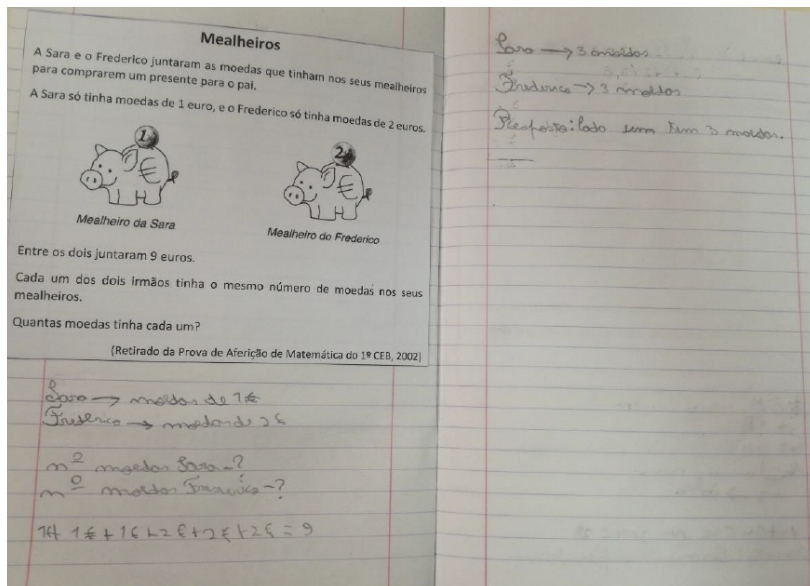 Mealheiros
A Sara e o Frederico juntaram as moedas que tinham nos seus mealheiros
para comprarem um presente para o pai.
A Sara só tinha moedas de 1 euro, e o Frederico só tinha moedas de 2 euros.
1 2
Mealheiro da Sara
Mealheiro do Frederico
Entre os dois juntaram 9 euros.
Cada um dos dois irmãos tinha o mesmo número de moedas nos seus
mealheiros.
Quantas moedas tinha cada um?
(Retirado da Prova de Aferição de Matemática do 1º CEB, 2002)
Sara → moedas de 1€
Frederico → moedas de 2€
nº moedas Sara-?
nº moedas -?
1€+1€+2€+2€+2€=9
Sara → 3 moedas
Frederico → 3 moedas
Resposta: Cada um tem 3 moedas.